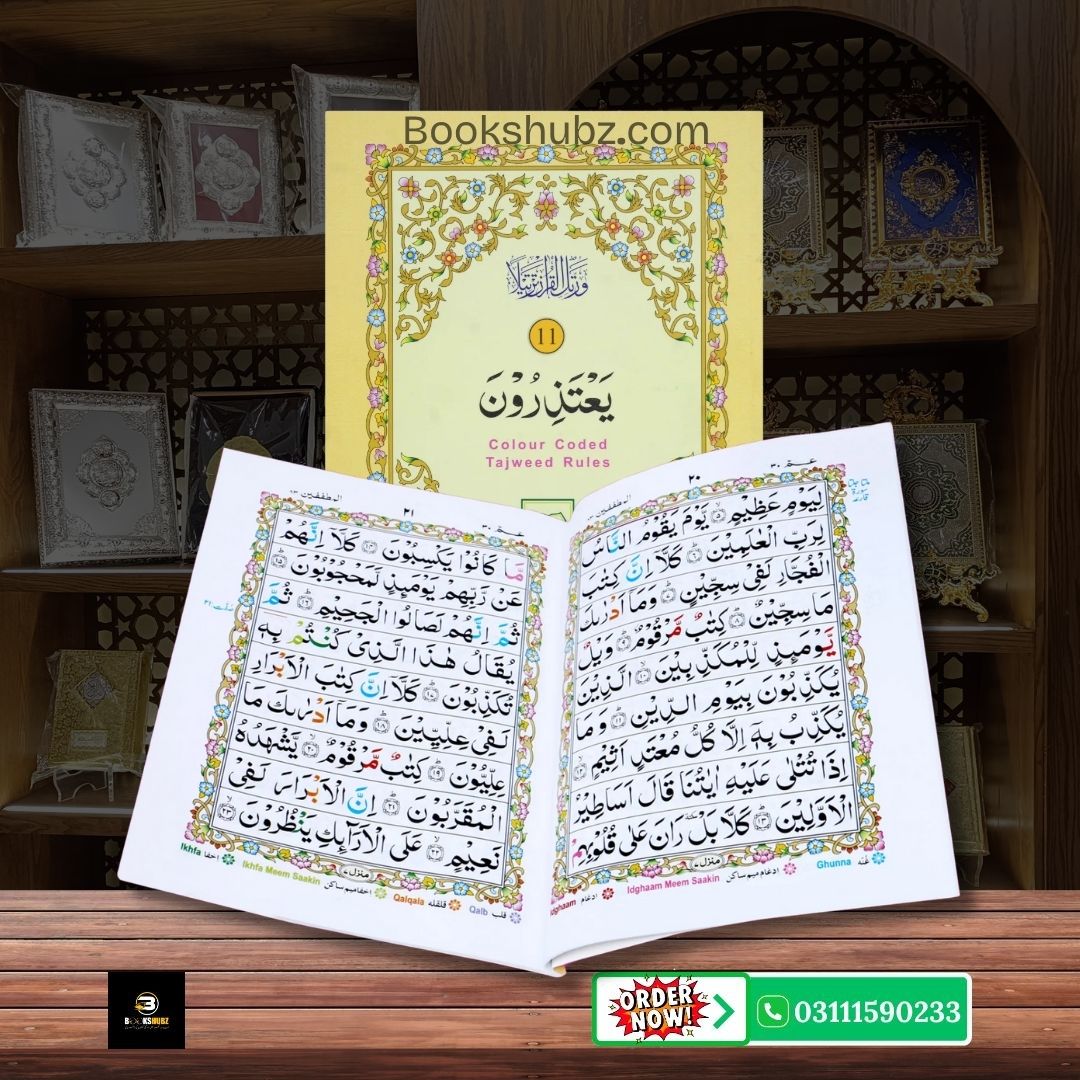 Bookshubz.com
وَرَتِّلِ الْقُرْآنَ تَرْتِيلًا
11
يَعْتَذِرُوْنَ
Colour Coded
Tajweed Rules
عـمّ ٣٠
٢٠
المطففين ٨٣
لِيَوْمٍ عَظِيْمٍ ۙ﴿۵﴾ يَّوْمَ يَقُوْمُ النَّاسُ
لِرَبِّ الْعٰلَمِيْنَ ؕ﴿۶﴾ كَلَّاۤ اِنَّ كِتٰبَ
الْفُجَّارِ لَفِيْ سِجِّيْنٍ ؕ﴿۷﴾ وَمَاۤ اَدْرٰىكَ
مَا سِجِّيْنٌ ؕ﴿۸﴾ كِتٰبٌ مَّرْقُوْمٌ ؕ﴿۹﴾ وَيْلٌ
يَّوْمَئِذٍ لِّلْمُكَذِّبِيْنَ ۙ﴿۱۰﴾ الَّذِيْنَ
يُكَذِّبُوْنَ بِيَوْمِ الدِّيْنِ ؕ﴿۱۱﴾ وَمَا
يُكَذِّبُ بِهٖۤ اِلَّا كُلُّ مُعْتَدٍ اَثِيْمٍ ۙ﴿۱۲﴾
اِذَا تُتْلٰى عَلَيْهِ اٰيٰتُنَا قَالَ اَسَاطِيْرُ
الْاَوَّلِيْنَ ؕ﴿۱۳﴾ كَلَّا بَلْ رَانَ عَلٰى قُلُوْبِهِمْ
منزل ٧
Ghunna غنّه
Idghaam Meem Saakin ادغام ميم ساكن
ادغام
عـمّ ٣٠
٢١
المطففين ٨٣
مَّا كَانُوْا يَكْسِبُوْنَ ﴿۱۴﴾ كَلَّاۤ اِنَّهُمْ
عَنْ رَّبِّهِمْ يَوْمَئِذٍ لَّمَحْجُوْبُوْنَ ؕ﴿۱۵﴾
ثُمَّ اِنَّهُمْ لَصَالُوا الْجَحِيْمِ ؕ﴿۱۶﴾ ثُمَّ
يُقَالُ هٰذَا الَّذِيْ كُنْتُمْ بِهٖ
تُكَذِّبُوْنَ ؕ﴿۱۷﴾ كَلَّاۤ اِنَّ كِتٰبَ الْاَبْرَارِ
لَفِيْ عِلِّيِّيْنَ ؕ﴿۱۸﴾ وَمَاۤ اَدْرٰىكَ مَا
عِلِّيُّوْنَ ؕ﴿۱۹﴾ كِتٰبٌ مَّرْقُوْمٌ ۙ﴿۲۰﴾ يَّشْهَدُهُ
الْمُقَرَّبُوْنَ ؕ﴿۲۱﴾ اِنَّ الْاَبْرَارَ لَفِيْ
نَعِيْمٍ ۙ﴿۲۲﴾ عَلَى الْاَرَآئِكِ يَنْظُرُوْنَ ۙ﴿۲۳﴾
منزل ٧
Ikhfa اخفا
Ikhfa Meem Saakin اخفا ميم ساكن
Qalqala قلقله
Qalb قلب
BOOKSHUBZ
ORDER
NOW!
03111590233